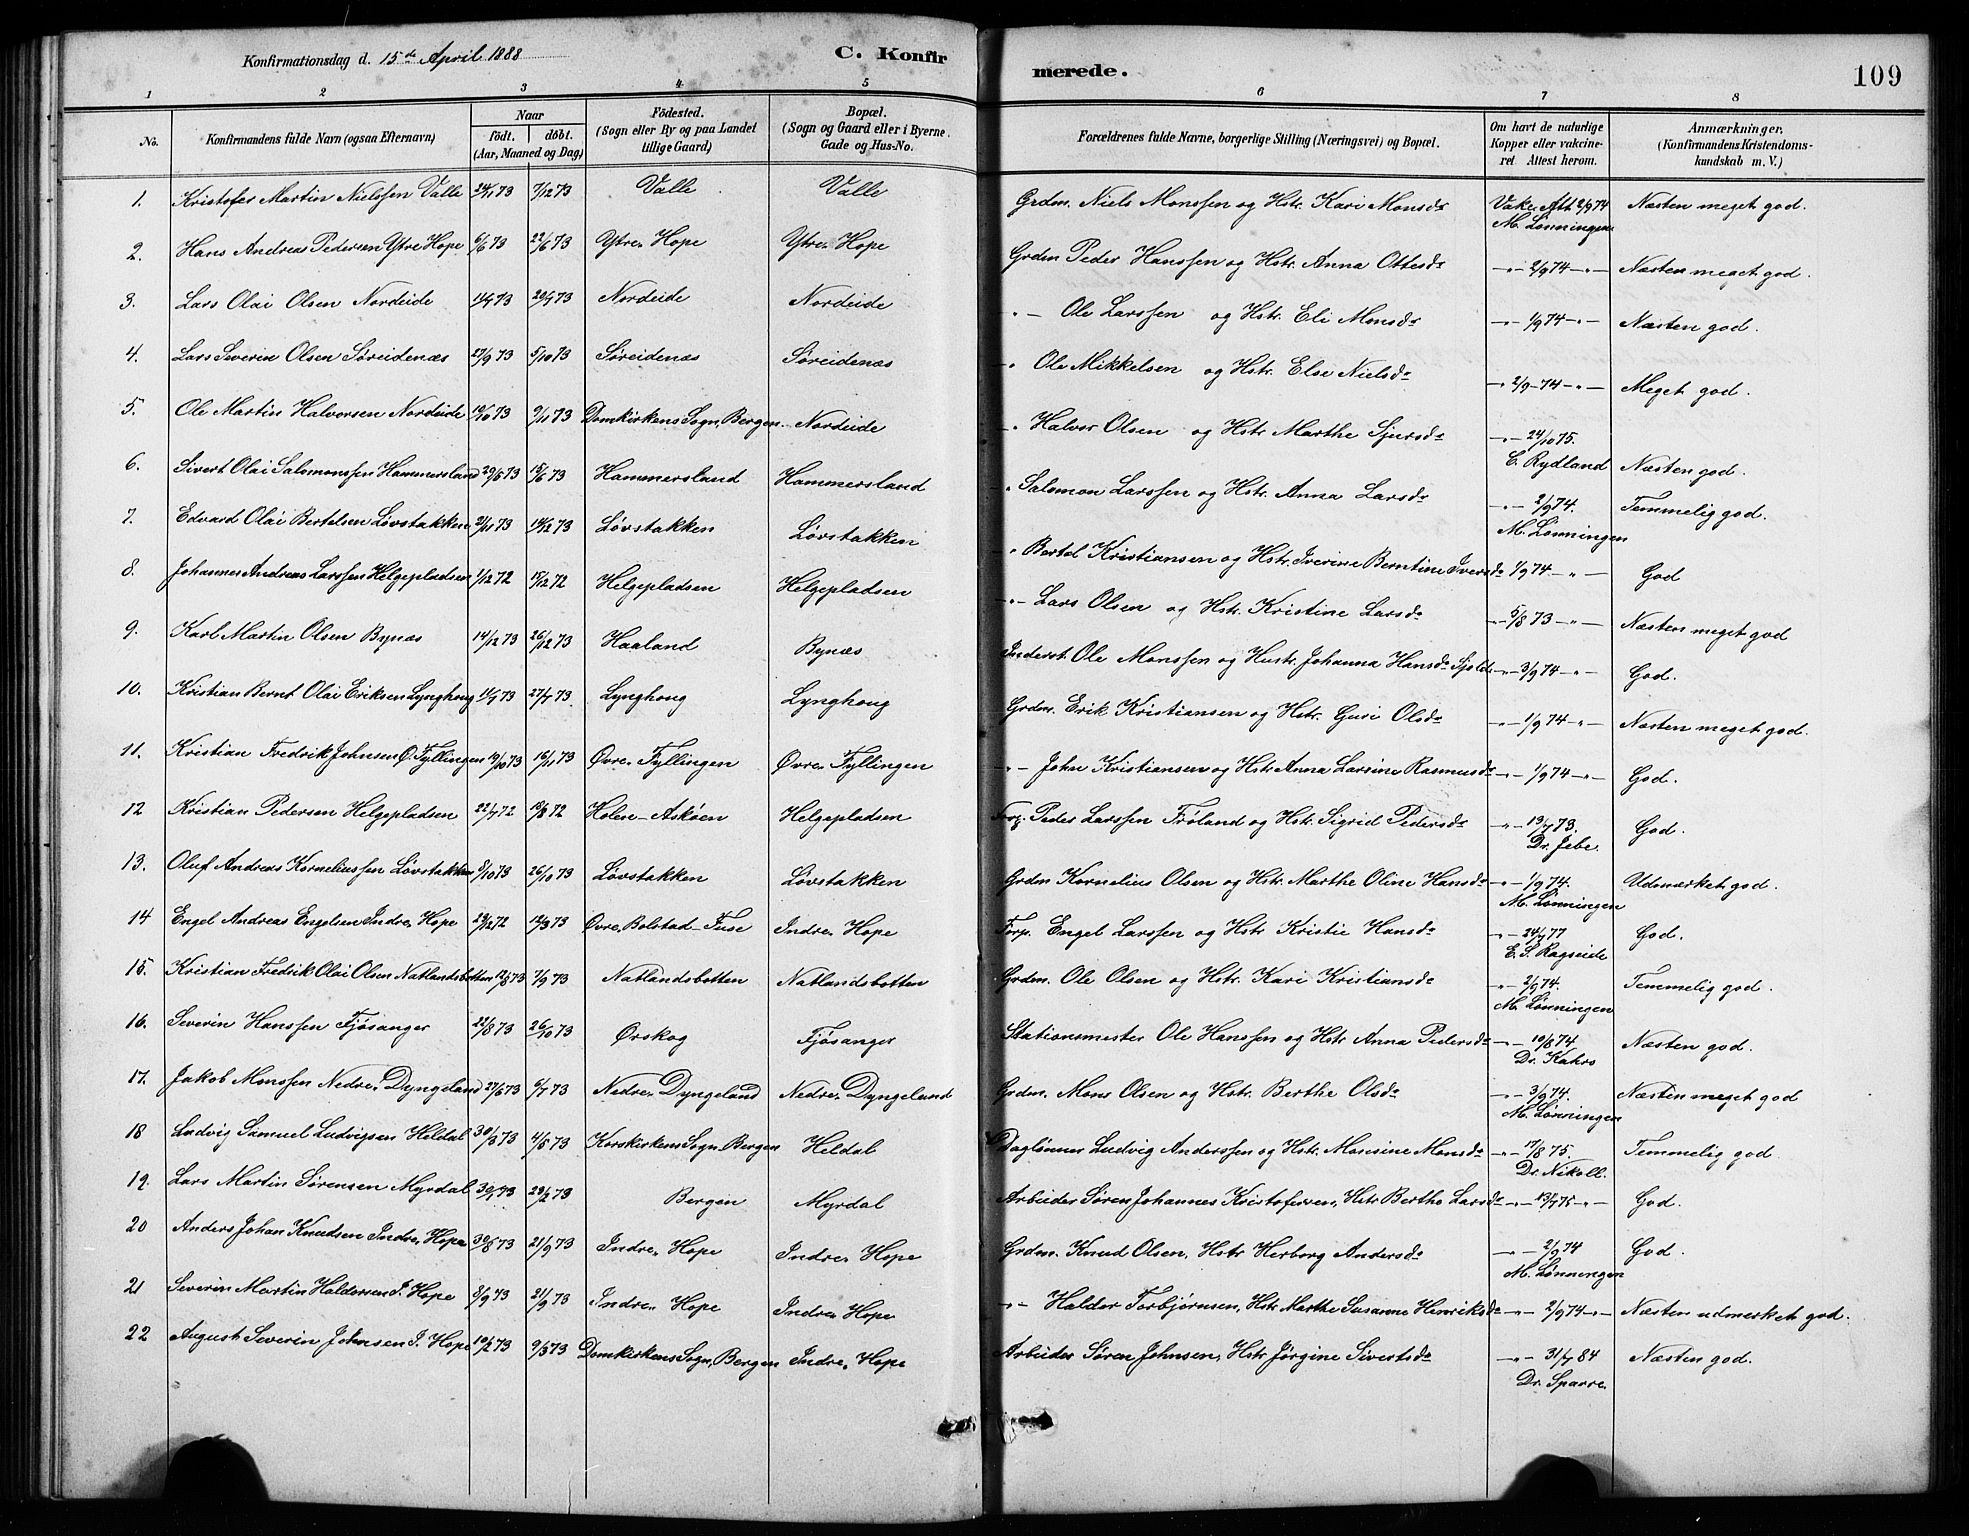 Konfirmationsdag d. 15de April 1888 C. Konfirmerede. 109
1 2 3 4 5 6 7 8
No. Konfirmandens fulde Navn (ogsaa Efternavn) Naar födt. döbt. (Aar, Maaned og Dag) Födested. (Sogn eller By og paa Landet tillige Gaard) Bopæl. (Sogn og Gaard eller i Byerne Gade og Hus-No. Forældrenes fulde Navne, borgerlige Stilling (Næringsvei) og Bopæl. Om havt de naturlige Kopper eller vakcineret Attest herom. Anmærkninger. (Konfirmandens Kristendomskundskab m. V.)
1. Kristofer Martin Nielssen Valle 24/1 73 7/12 73 Valle Valle Grdm. Niels Monssen og Hstr. Kari Monsdr Vakc. Att 2/9 74 M. Lønningen Næsten meget god.
2. Hans Andreas Pedersen Ytre Hope 6/6 73 22/6 73 Ytre Hope Ytre Hope Grdm Peder Hanssen og Hstr. Anna Ottesdr -"- 2/9 74 -"- Næsten meget god.
3. Lars Olai Olsen Nordeide 73 73 Nordeide Nordeide -"- Ole Larssen og Hstr. Eli Monsdr -"- 1/9 74 -"- Næsten god.
4. Lars Severin Olsen Søreidenæs 27/9 73 5/10 73 Søreidenæs Søreidenæs -"- Ole Mikkelsen og Hstr. Else Nielsdr -"- 2/9 74 -"- Meget god.
5. Ole Martin Halvorsen Nordeide 73 9/11 73 Domkirkens Sogn, Bergen. Nordeide -"- Halvor Olsen og Hstr Marthe Sjursdr -"- 24/10 75. E. Rydland Næsten god.
6. Sivert Olai Salomonssen Hammersland 29/5 73 15/6 73 Hammersland Hammersland -"- Salomon Larssen og Hstr. Anna Larsdr -"- 2/9 74. M. Lønningen Temmelig god.
7. Edvard Olai Bertelsen Løvstakken 2/11 73 14/12 73 Løvstakken Løvstakken -"- Bertel Kristiansen og Hstr. Iverine Berntine Iversdr 1/9 74 -"- God
8. Johannes Andreas Larssen Helgepladsen 1/12 72 15/12 72 Helgepladsen Helgepladsen -"- Lars Olsen og Hstr. Kristine Larsdr -"- 5/8 73 -"- Næsten meget god
9. Karl Martin Olsen Bynæs 14/12 73 26/12 73 Haaland Bynæs Ole Monssen og Hustr. Johanna Hansdr -"- 3/9 74 -"- God.
10. Kristian Bernt Olai Eriksen Lynghoug 73 27/7 73. Lynghoug Lynghoug Grdm. Erik Kristiansen og Hstr. Guri Olsdr -"- 1/9 74 -"- Næsten meget god.
11. Kristian Fredrik Johnsen Ø. Fyllingen 19/10 73 16/11 73 Øvre Fyllingen Øvre Fyllingen -"- John Kristiansen og Hstr Anna Larsine Rasmusdr -"- 1/9 74 -"- God.
12 Kristian Pedersen Helgepladsen 22/7 72 18/8 72 Holen - Askøen Helgepladsen Forp. Peder Larssen Frøland og Hstr. Sigrid Pedersdr -"- 19/7 73. Dr. Jebe. God.
13. Oluf Andreas Korneliussen Løvstakken 8/10 73 26/10 73 Løvstakken Løvstakken Grdm Kornelius Olsen og Hstr. Marthe Oline Hansdr -"- 1/9 74. M. Lønningen Udmærket god.
14 Engel Andreas Engelsen Indre Hope 29/12 72 73 Øvre Bolstad - Fuse Indre Hope Forp. Engel Larssen og Hstr Kristie Hansdr -"- 24/7 77 E. S. Ragseide God.
15. Kristian Fredrik Olai Olsen Natlandsbotten 12/8 73 7/9 73 Natlandsbotten Natlandsbotten Grdm. Ole Olsen og Hstr. Kari Kristiansdr -"- 2/9 74. M. Lønningen Temmelig god.
16. Severin Hanssen Fjøsanger 22/8 73 26/10 73 Ørskog Fjøsanger Stationsmester Ole Hanssen og Hstr Anna Pedersdr -"- 19/8 74 Dr. Kahrs Næsten god.
17. Jakob Monssen Nedre Dyngeland 27/6 73 6/7 73 Nedre Dyngeland Nedre Dyngeland Grdm. Mons Olsen og Hstr. Berthe Olsdr -"- 3/9 74. M. Lønningen Næsten meget god
18 Ludvig Samuel Ludvigsen Heldal 30/3 73 4/5 73 Korskirkens Sogn, Bergen Heldal Daglønner Ludvig Anderssen og Hstr. Monsine Monsdr -"- 17/8 75. Dr. Nikoll. Temmelig god
19. Lars Martin Sørensen Myrdal 73 23/2 73 Bergen Myrdal Arbeider Søren Johannes Kristofersen, Hstr. Berthe Larsdr -"- 13/7 75 -"- God.
20 Anders Johan Knudsen Indre Hope 30/8 73 21/9 73 Indre Hope Indre Hope Grdm. Knud Olsen, Hstr Herborg Andersdr -"- 2/9 74 M. Lønningen God.
21 Severin Martin Haldorsen I. Hope 8/9 73 21/9 73 Indre Hope Indre Hope -"- Haldor Torbjørnsen, Hstr. Marthe Susanne Henriksdr -"- 2/9 74 -"- Næsten udmerket god.
22 August Severin Johnsen I. Hope 19/2 73 9/3 73 Domkirkens Sogn, Bergen Indre Hope Arbeider Søren Johnsen, Hstr Jørgine Sivertsdr -"- 31/7 84 Dr. Sparre. Næsten god.